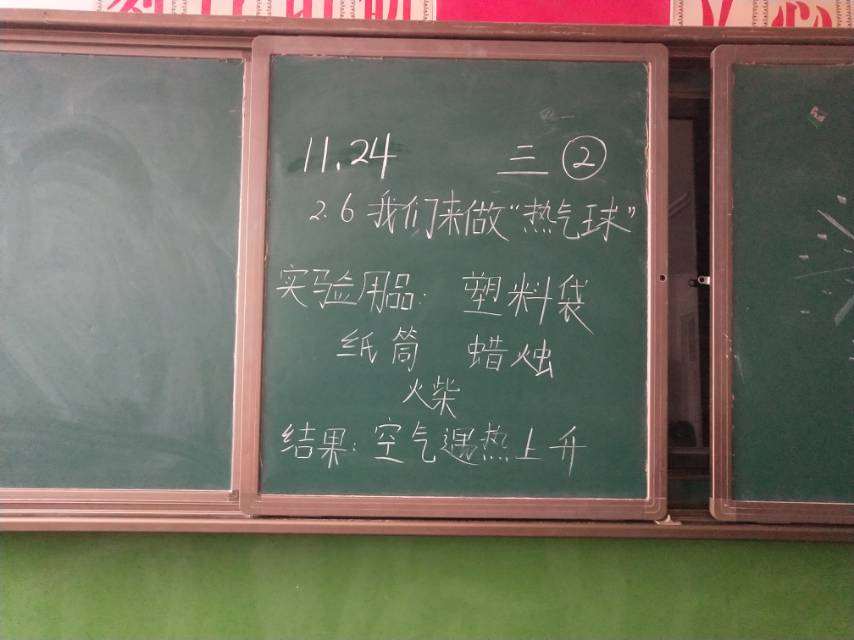 11.24 三②
2.6 我们来做“热气球”
实验用品: 塑料袋
纸筒 蜡烛
火柴
结果: 空气遇热上升